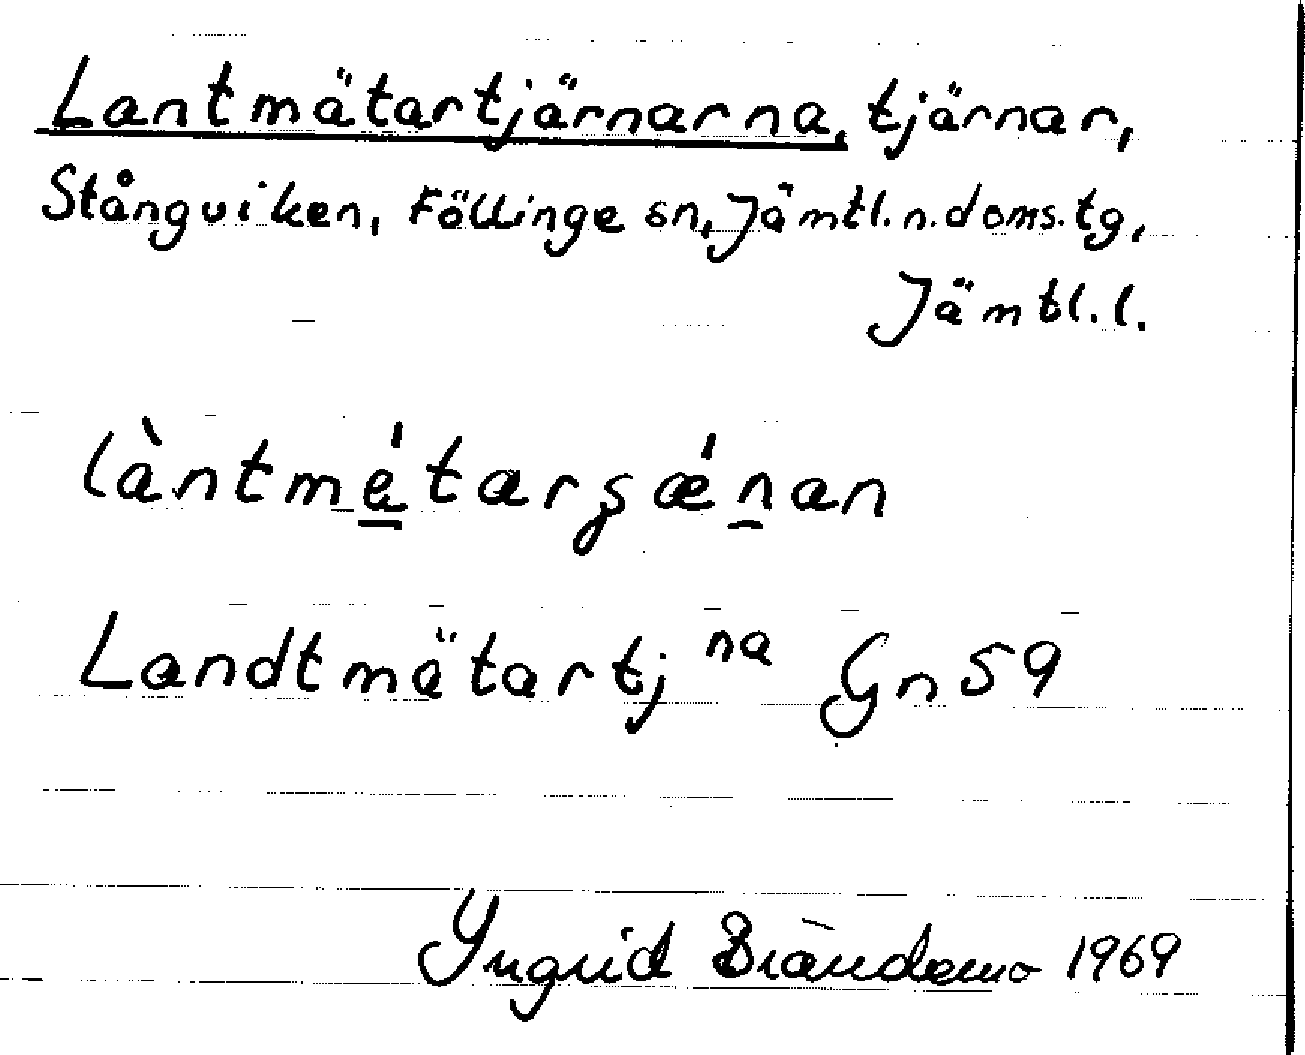 Lantmätartjärnarna, tjärnar,
Stångviken, Föllinge sn, Jämtl.n.doms.tg,
Jämtl.l.
làntmé̠tarʂǽn̠an
Landtmätartj na Gn 59
Yngrid Brändemo 1969